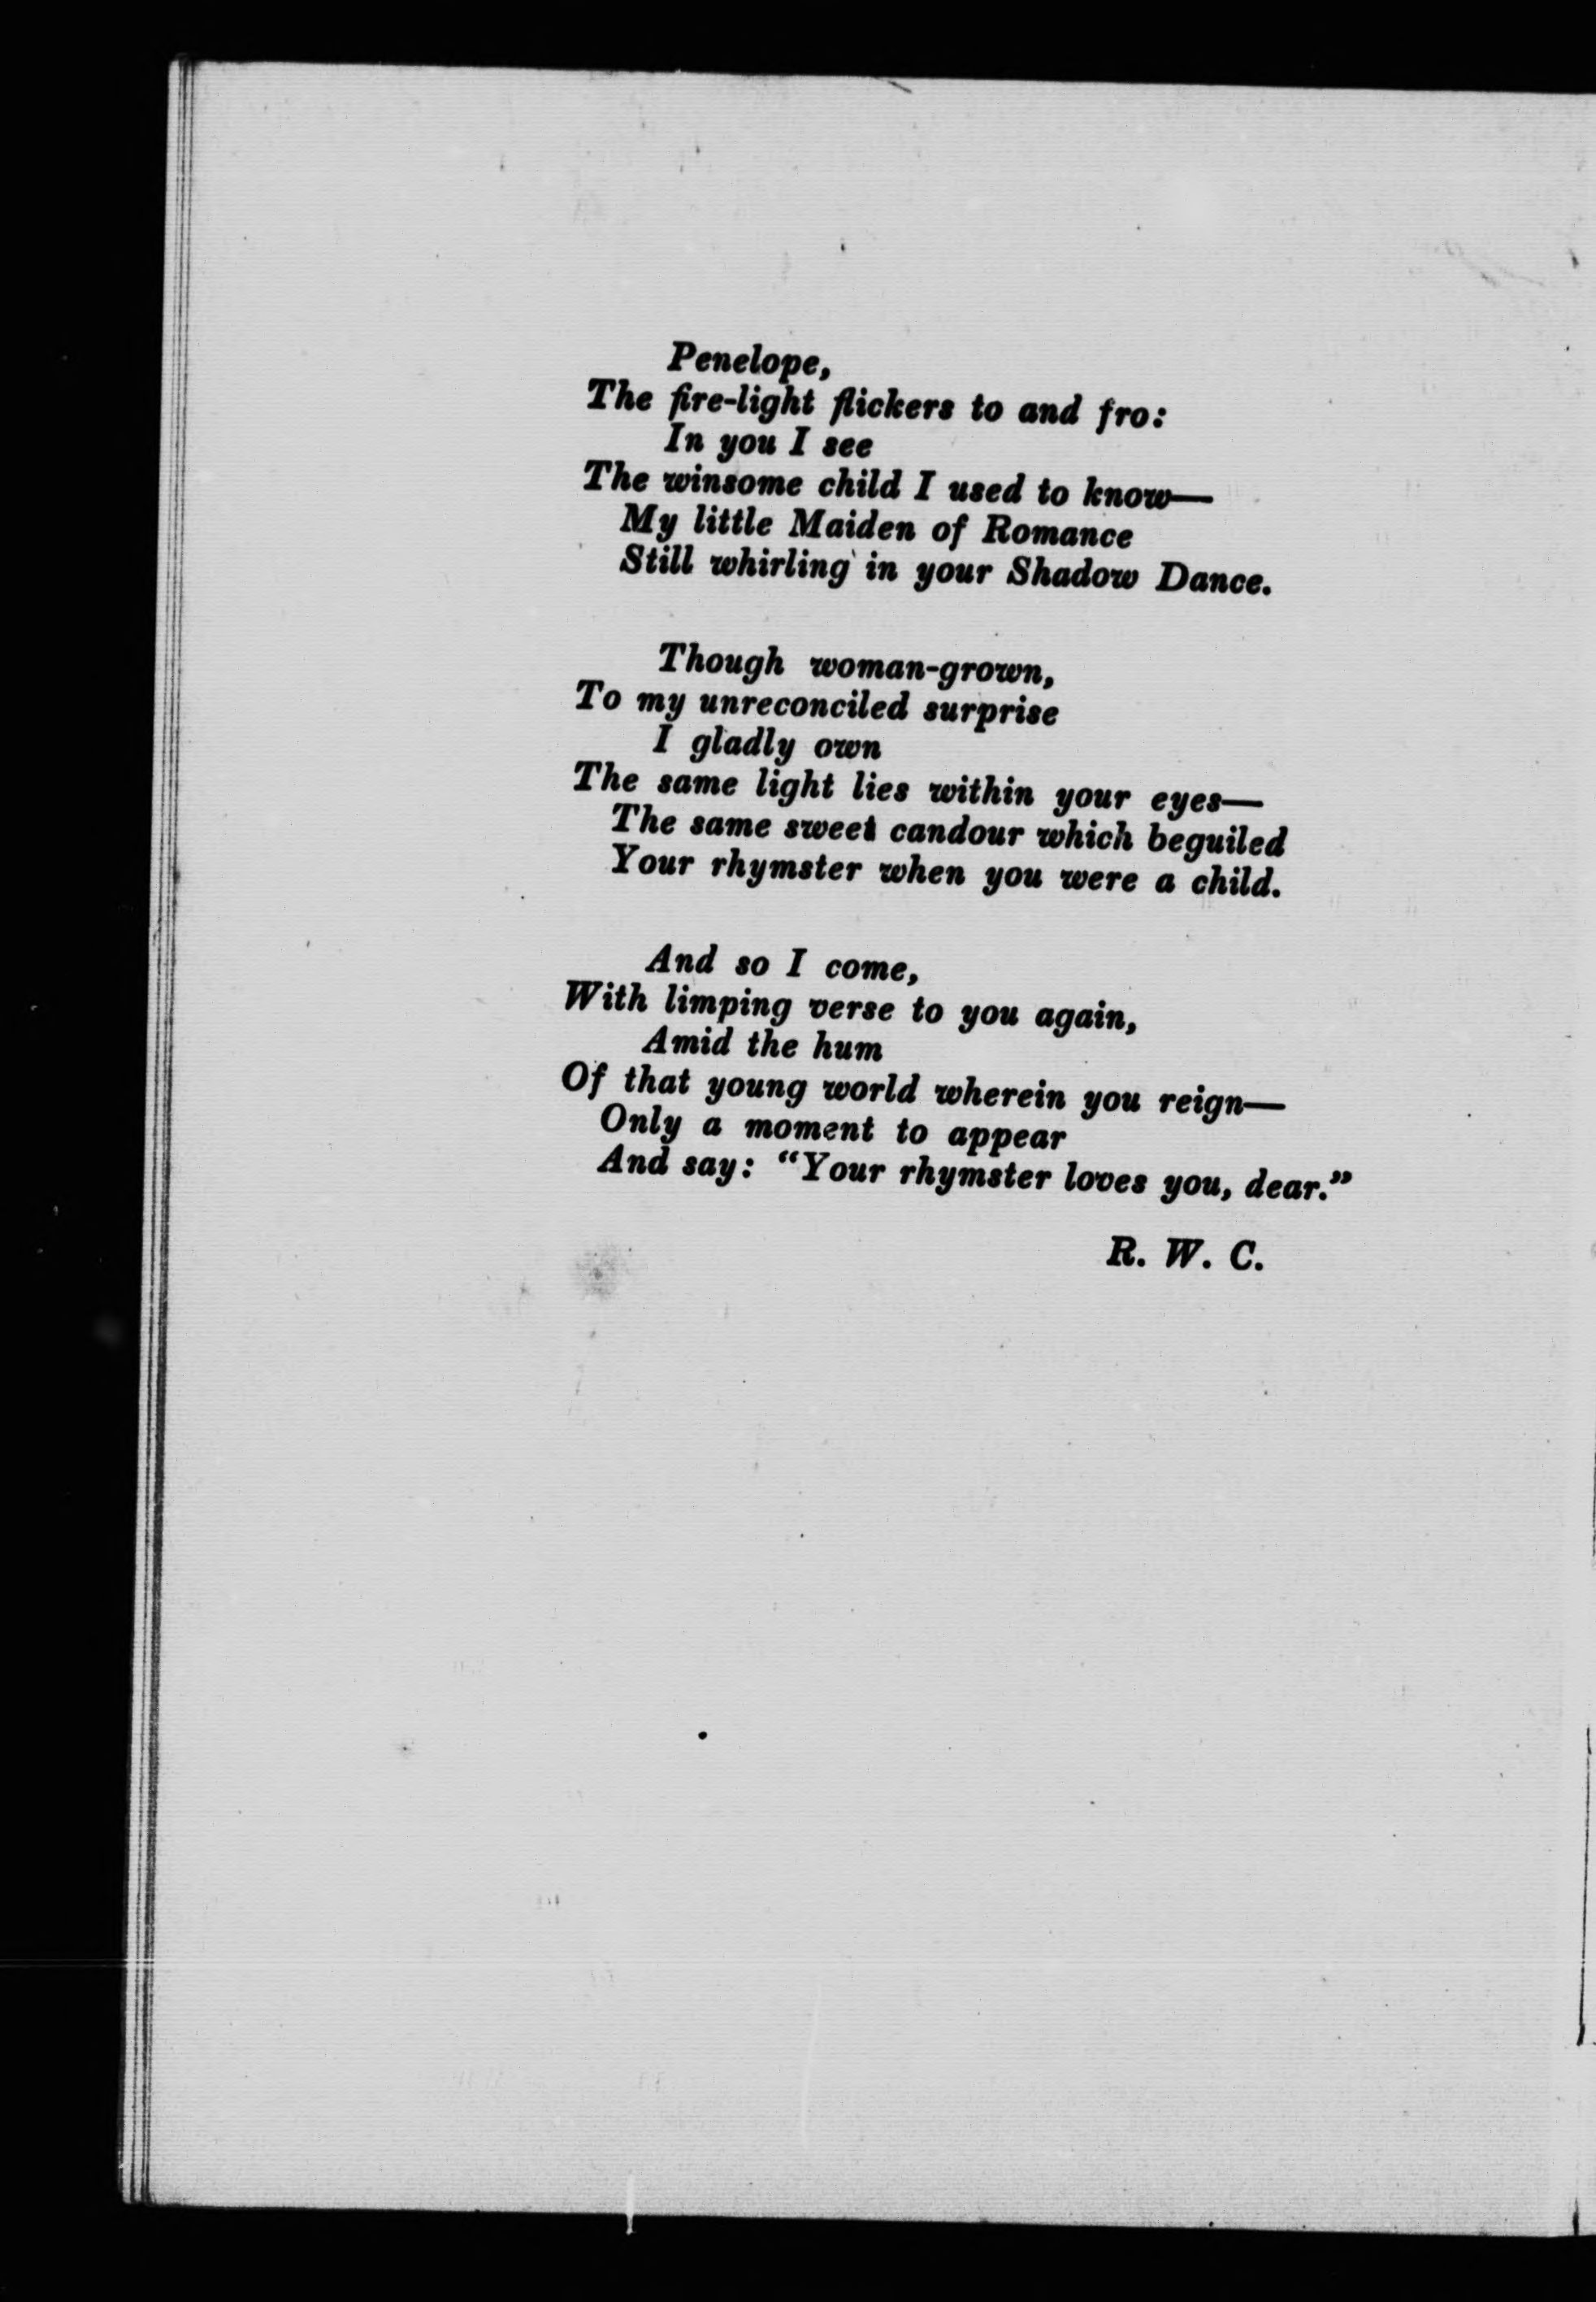 Penelope,
The fire-light flickers to and fro:
In you I see
The winsome child I used to know—
My little Maiden of Romance
Still whirling in your Shadow Dance.
Though woman-grown,
To my unreconciled surprise
I gladly own
The same light lies within your eyes—
The same sweet candour which beguiled
Your rhymster when you were a child.
And so I come,
With limping verse to you again,
Amid the hum
Of that young world wherein you reign—
Only a moment to appear
And say: “Your rhymster loves you, dear.”
R. W. C.